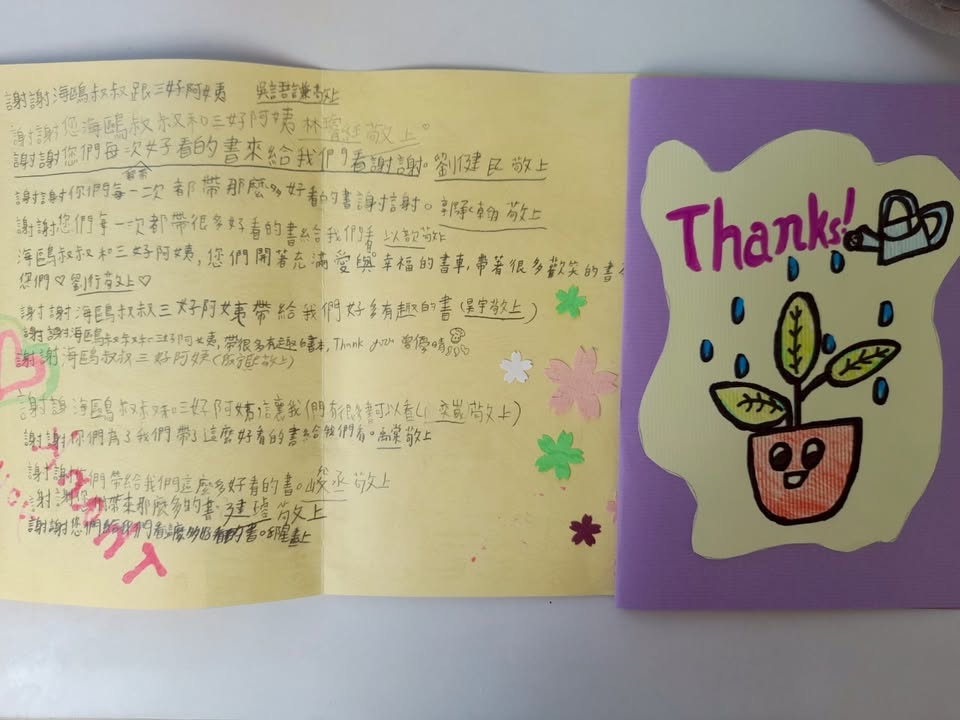 謝謝海鷗叔叔跟三好阿姨 吳語謙敬上
謝謝您海鷗叔叔和三好阿姨 林 敬上
謝謝您們每次好看的書來給我們看謝謝。劉健民敬上
帶
謝謝你們每一次都帶那麼多好看的書謝謝。 翰敬上
謝謝您們每一次都帶很多好看的書給我們看 以 敬上
海鷗叔叔和三好阿姨,您們開著充滿愛與幸福的書車,帶著很多歡笑的書
您們♡劉行敬上♡
謝謝海鷗叔叔三好阿姨帶給我們好多有趣的書( 宇敬上)
謝謝海鷗叔叔和三好阿姨,帶很多有趣的書本,Thank you 曾 晴
謝謝海鷗叔叔三好阿姨( 敬上)
謝謝海鷗叔叔和三好阿姨讓我們有很 書可以看( 敬上)
謝謝你們為了我們帶了這麼好看的書給我們看。 棠敬上
謝謝您們帶給我們這麼多好看的書。 丞敬上
謝謝 們帶來那麼多的書。建 敬上
謝謝您們給我們看 多好看的書。 星 上
Thanks!